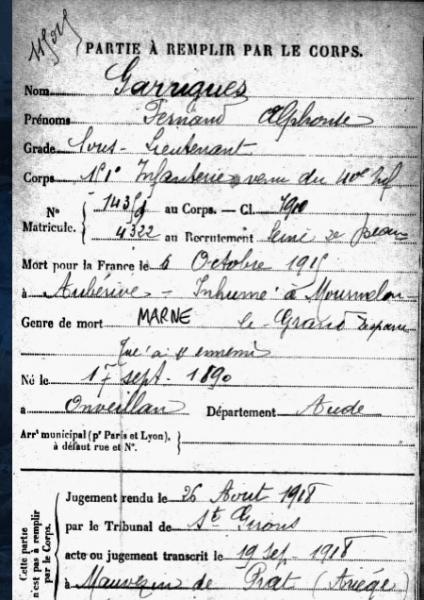 PARTIE À REMPLIR PAR LE CORPS.
Nom Garrigues
Prénoms Fernand Alphonse
Grade Sous-Lieutenant
Corps Infanterie venu du 40e Inf
Nº 1438 au Corps. — Cl. 1910
Matricule. 4322 au Recrutement Seine
Mort pour la France le 6 Octobre 1915
à Aubérive - Inhumé à Mourmelon
Genre de mort MARNE le Grand Disparu
Tué à l'ennemi
Né le 17 sept. 1890
à Ouveillan Département Aude
Arrt municipal (pr Paris et Lyon),
à défaut rue et Nº.
Cette partie
n'est pas à remplir
par le Corps.
Jugement rendu le 26 Aout 1918
par le Tribunal de St Girons
acte ou jugement transcrit le 19 Sep. 1918
à Mauvezin de Prat (Ariège)